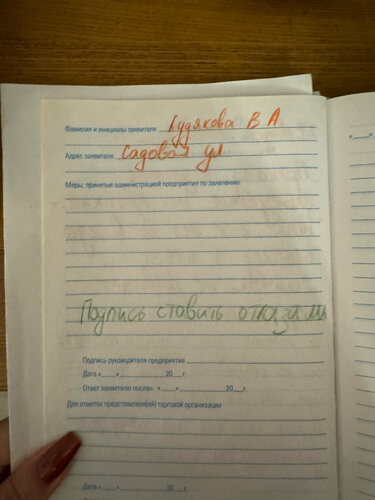 Фамилия и инициалы заявителя Худякова В А
Адрес заявителя Садовая ул.
Меры, принятые администрацией предприятия по заявлению:
Подпись ставить отказали
Подпись руководителя предприятия
Дата « » 20 г.
Ответ заявителю послан « » 20 г.
Для отметок представителя(ей) торговой организации
Дата « » 20 г.